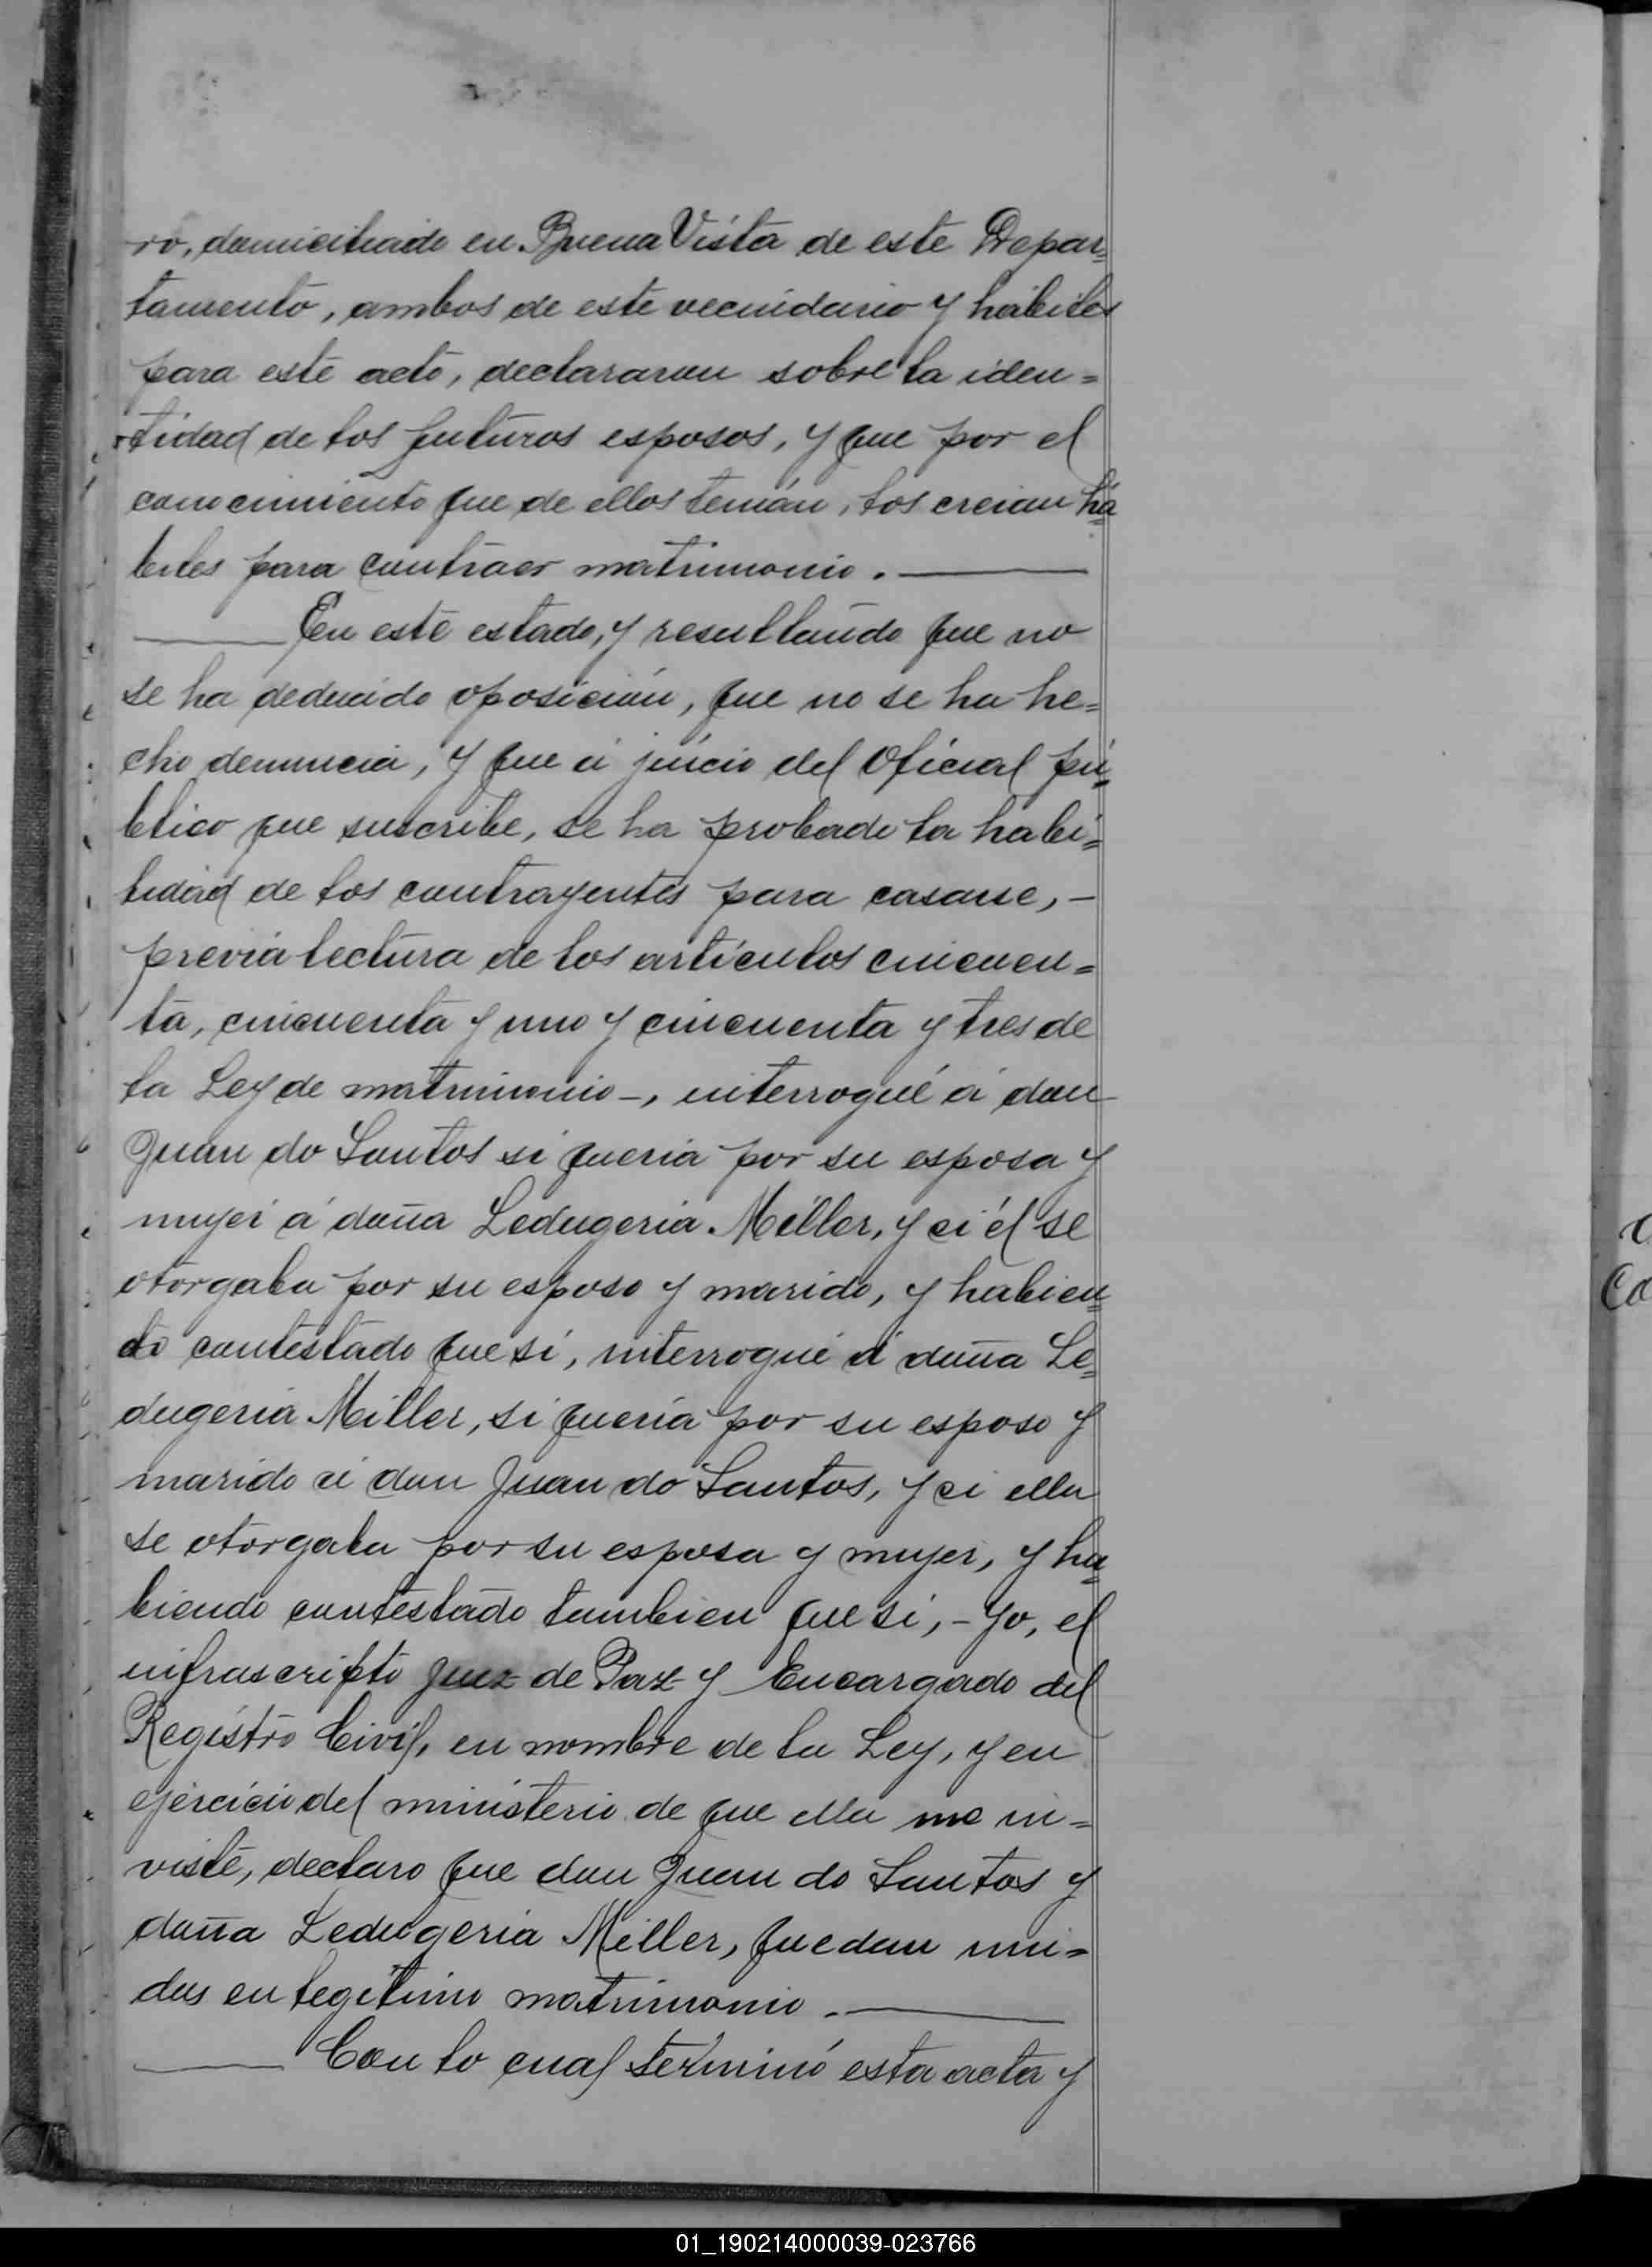 ro, domiciliado en Buena Vista de este Depar=
tamento, ambos de este vecindario y hábiles
para este acto, declararon sobre la iden=
tidad de los futuros esposos, y que por el
conocimiento que de ellos tenían, los creian há
biles para contraer matrimonio. —
— En este estado, y resultando que no
se ha deducido oposición, que no se ha he=
cho denuncia, y que á juicio del Oficial pú=
blico que suscribe, se ha probado la habi=
lidad de los contrayentes para casarse, –
previa lectura de los artículos cincuen=
ta, cincuenta y uno y cincuenta y tres de
la Ley de matrimonio –, interrogué á don
Juan do Santos si queria por su esposa y
mujer á doña Ledugeria Miller, y si él se
otorgaba por su esposo y marido, y habien=
do contestado que si, interrogué á doña Le=
dugeria Miller, si quería por su esposo y
marido á don Juan do Santos, y si ella
se otorgaba por su esposa y mujer, y ha=
biendo contestado tambien que si, – Yo, el
infrascripto Juez de Paz y Encargado del
Registro Civil, en nombre de la Ley, y en
ejercicio del ministerio de que ella me in=
viste, declaro que don Juan do Santos y
doña Ledugeria Miller, quedan uni=
dos en legítimo matrimonio. —
— Con lo cual terminó esta acta y
Co
01_190214000039-023766